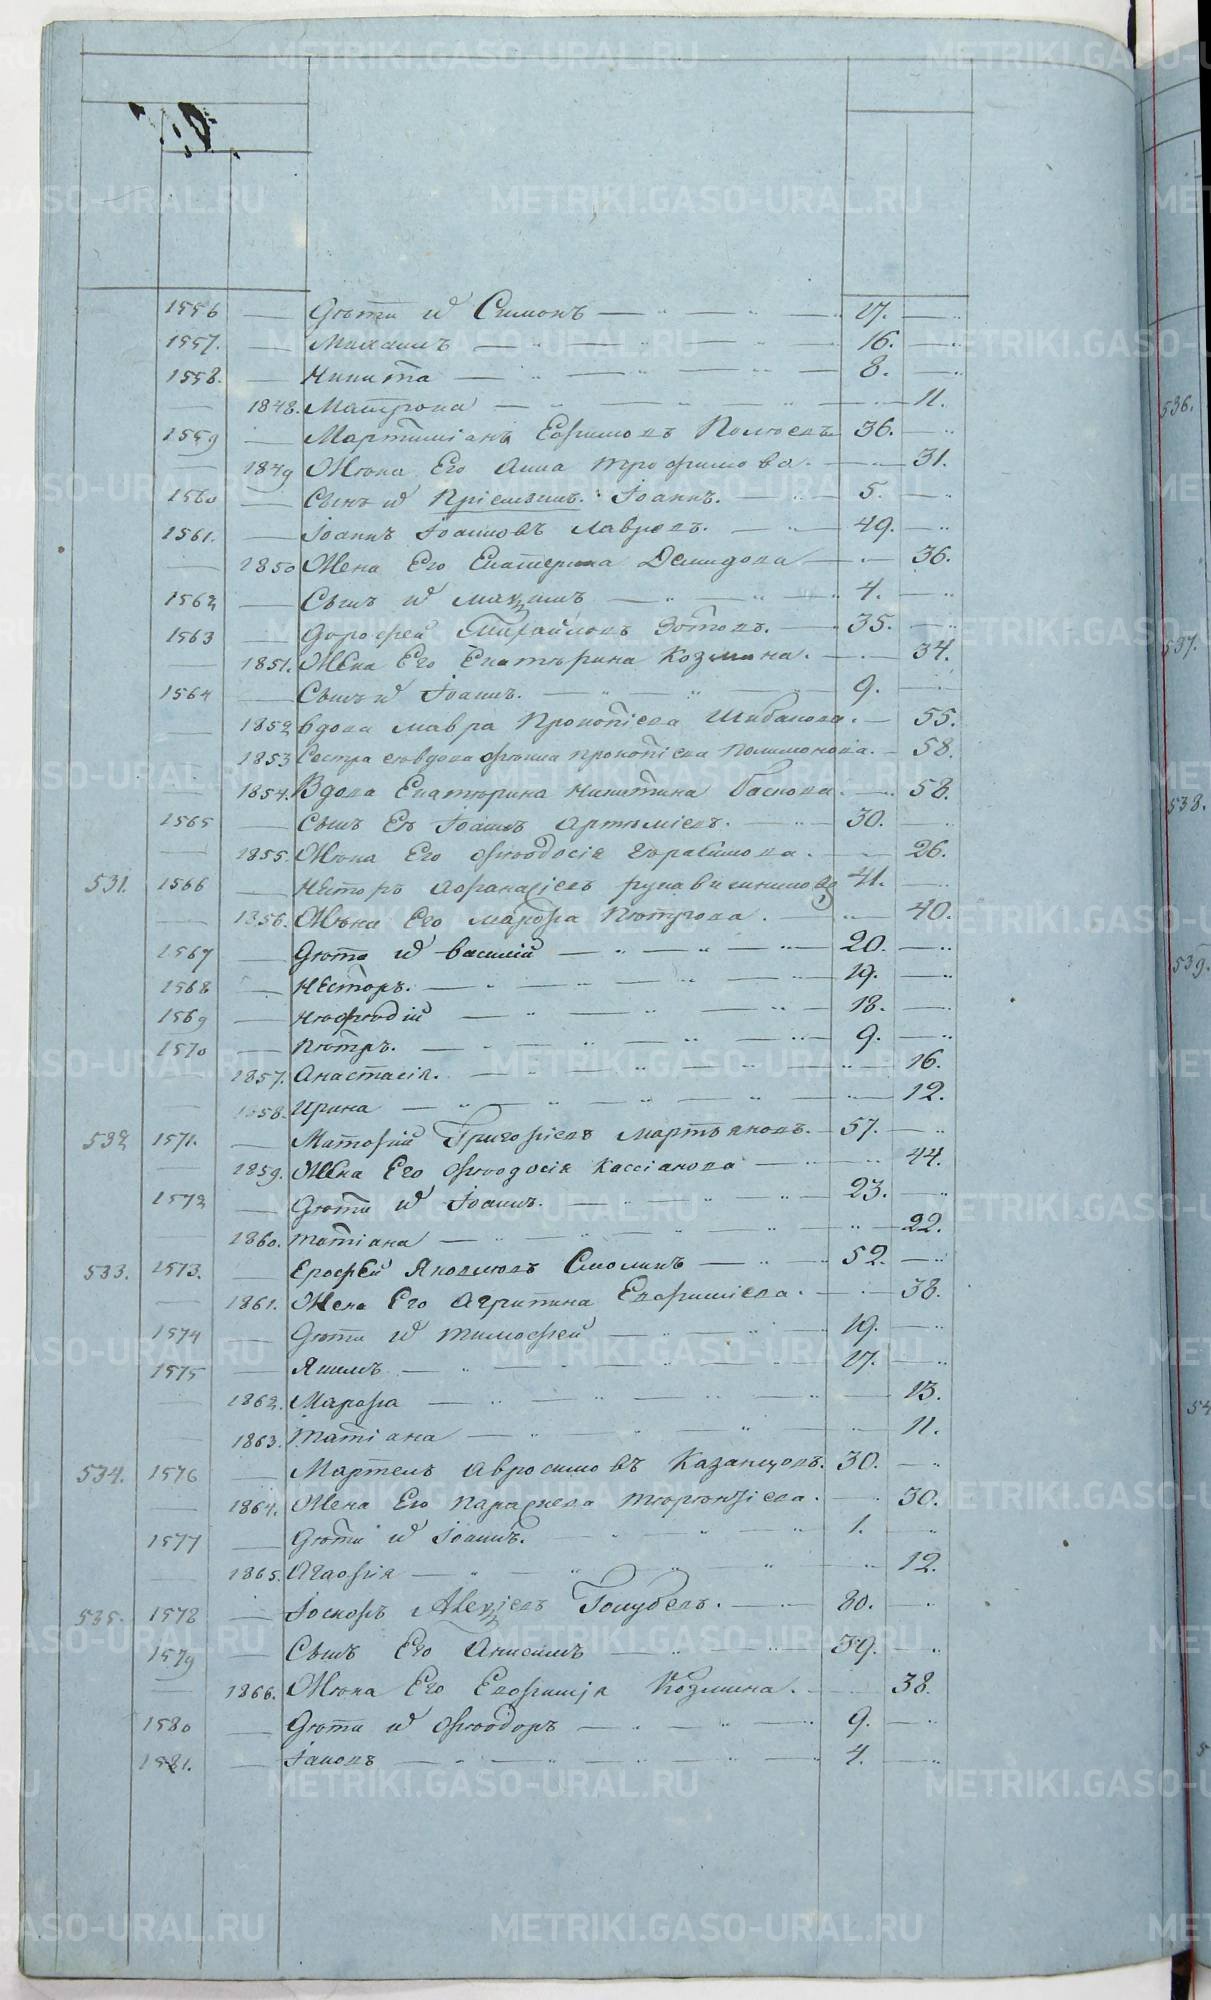 1556 Дѣти и҆ Симонъ 17.
1557. Михаилъ 16.
1558. Никита 8.
1848. Матрона 11.
1559 Мартиніанъ Ефимовъ 36.
1849 Жена Его Анна Трофимова. 31.
1560 Сынъ и҆ Пріемышъ. Іоаннъ. 5.
1561. Іоаннъ Іоанновъ Лавровъ. 49.
1850 Жена Его Екатерина Демидова 36.
1562 Сынъ и҆ 4.
1563 Дорофей Михайловъ Зотовъ. 35.
1851. Жена Его Екатерина Козмина. 34.
1564 Сынъ и҆ Іоаннъ. 9.
1852 Вдова Мавра Прокопіева Шибанова. 55.
1853 Сестра Прокопіева 58.
1854. Вдова Екатерина Никитина Баскова. 58.
1565 Сынъ Ея Іоаннъ Артеміевъ. 30.
1855. Жена Его Феодосія Герасимова. 26.
531. 1566 Несторъ Афанасіевъ 41.
1856. Жена Его Марфа Петрова. 40.
1567 Дѣти и҆ Василій 20.
1568 Несторъ. 19.
1569 Мефодій 18.
1570 Петръ. 9.
1857. Анастасія. 16.
1858. Ирина 12.
532 1571. Матфій Григоріевъ Мартьяновъ. 57.
1859. Жена Его Феодосія Кассіанова 44.
1572 Дѣти и҆ Іоаннъ. 23.
1860. Татіана 22.
533. 1573. Ерофей Яковлевъ Смолинъ 52.
1861. Жена Его Агрипина Евфиміева. 38.
1574 Дѣти и҆ Тимофей 19.
1575 Якимъ 17.
1862. Марфа 13.
1863. Татіана 11.
534. 1576 Мартелъ Авросимовъ Казанцовъ. 30.
1864. Жена Его Параскева Терентіева. 30.
1577 Дѣти и҆ Іоаннъ. 1.
1865. Агафія 12.
535. 1578 Іосифъ Алексіевъ Голубевъ. 80.
1579 Сынъ Его Анисимъ 39.
1866. Жена Его Евфимія Козмина. 38.
1580 Дѣти и҆ Феодоръ 9.
1581. Іаковъ 4.
536.
537.
538.
539.
METRIKI.GASO-URAL.RU